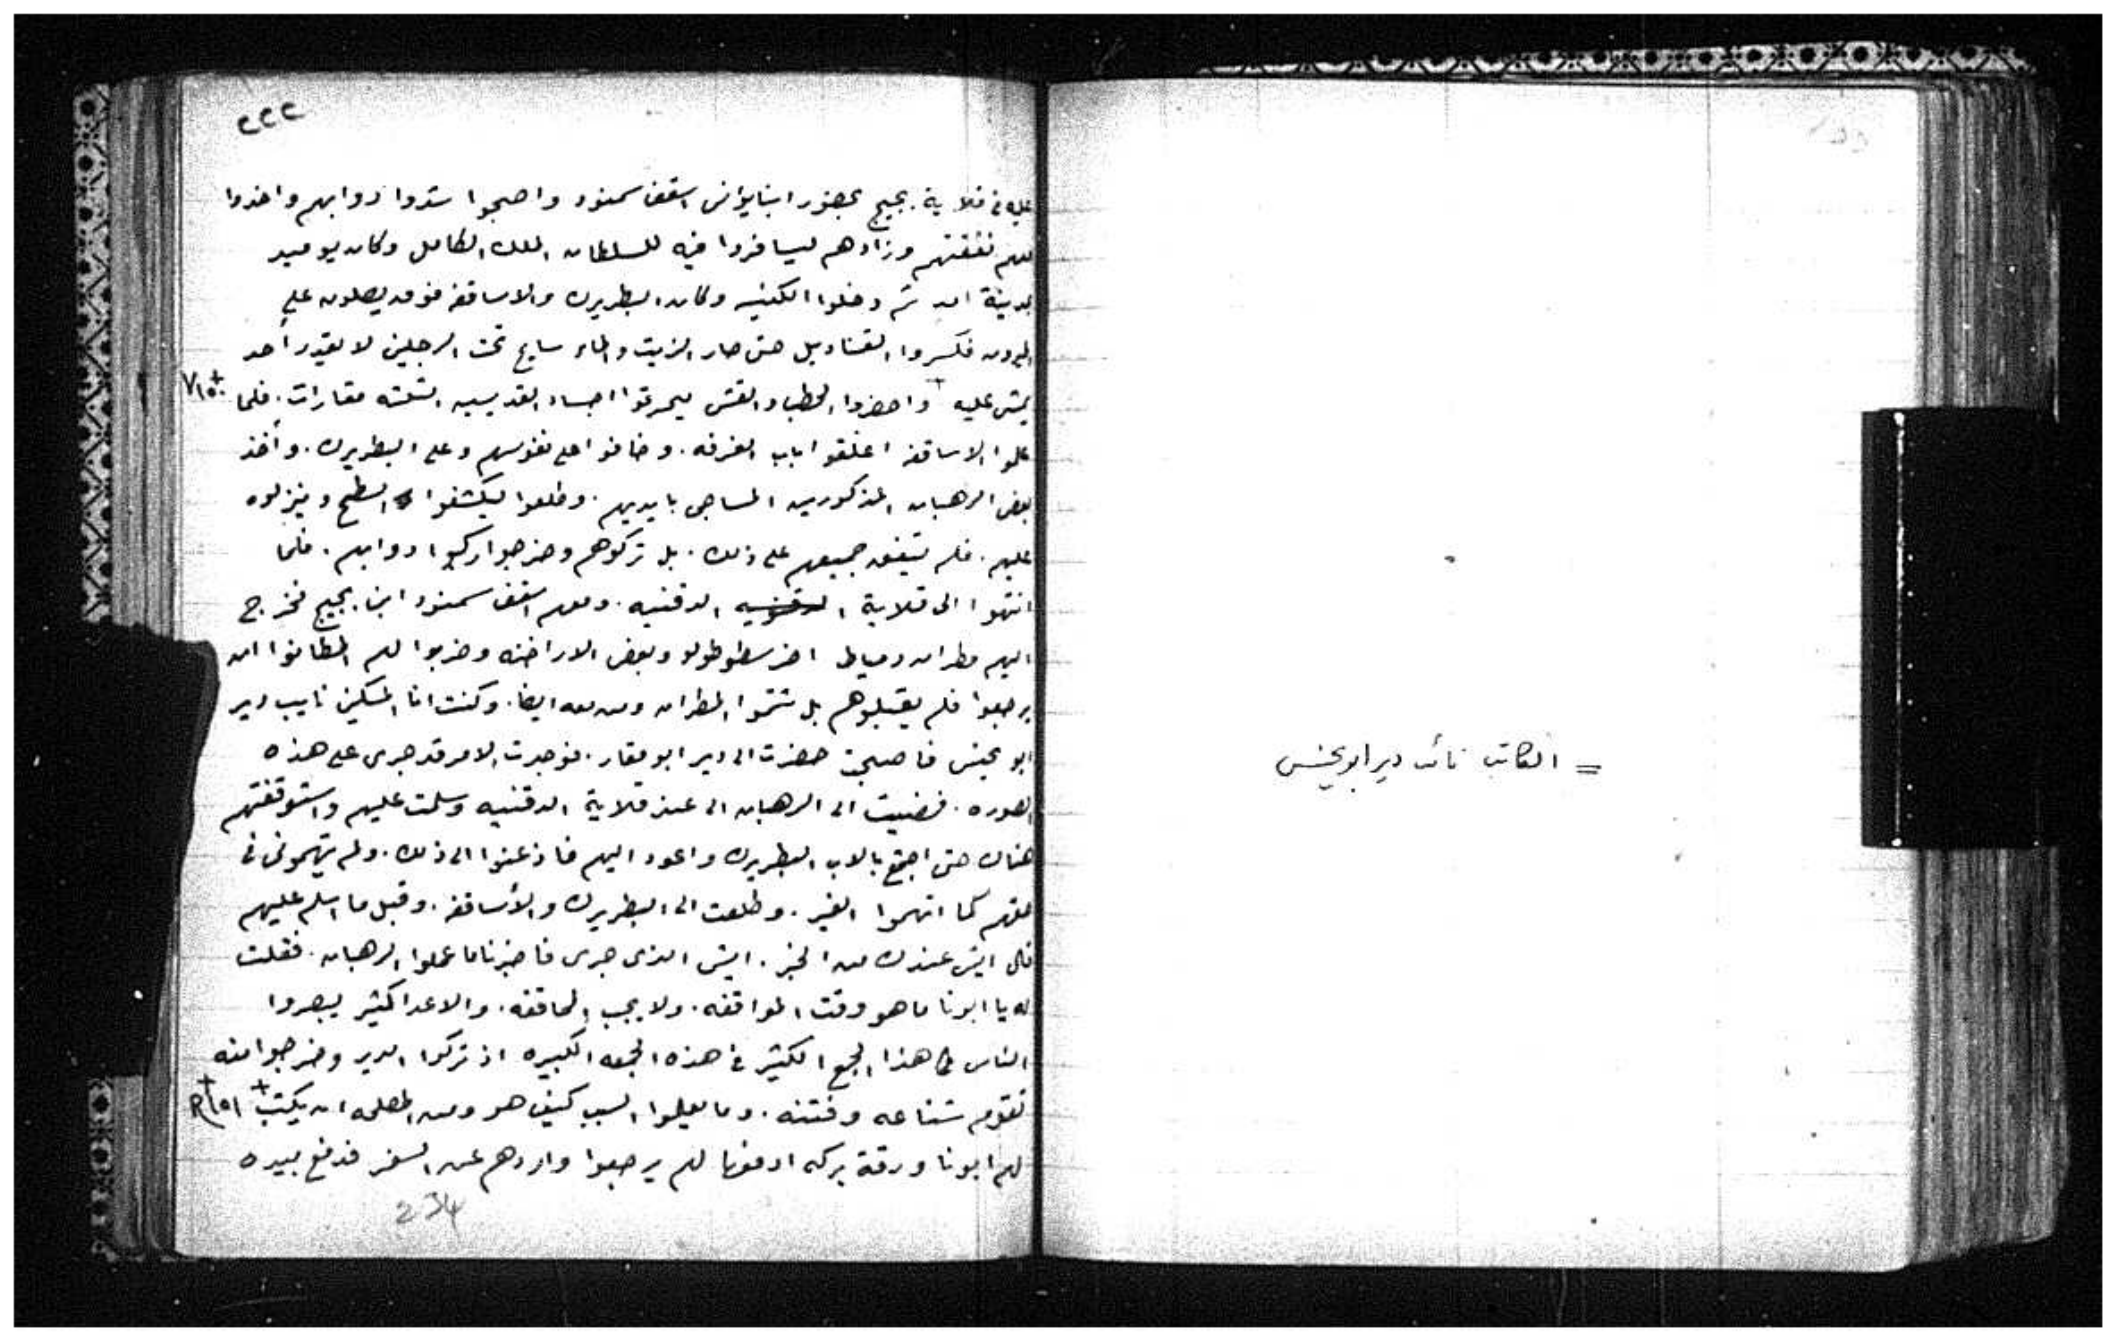 = الكاتب نائب دير ابو يحنس
٢٢٢
عليه في قلاية بجيج بحضور انبا يوانس اسقف سمنود واصبحوا شدوا دوابهم واخدوا
معهم نفقتهم وزادهم ليسافروا فيه للسلطان الملك الكامل وكان يوميد
بمدينة امد ثم دخلوا الكنيسه وكان البطريرك والاساقفه فوق يصلون على
الميرون فكسروا القناديل حتى صار الزيت والماء سايح تحت الرجلين لا يقدر أحد
يمشي عليه + واحضروا الحطب والقش ليحرقوا اجساد القديسين الثلثه مقارات. فلما
علموا الاساقفه اغلقوا باب الغرفه. وخافوا على نفوسهم وعلى البطريرك. وأخذ
بعض الرهبان المذكورين المساحي بايديهم. وطلعوا ليكشفوا السطح وينزلوه
عليهم. فلم يتفق جميعهم على ذلك. بل تركوهم وخرجوا ركبوا دوابهم. فلما
انتهوا الى قلاية الدقنيه. ومعهم اسقف سمنود ابن بجيج فخرج
اليهم مطران دمياط اخرسطوطولو وبعض الاراخنه وضربوا لهم المطانوا ان
يرجعوا فلم يقبلوهم بل شتموا المطران ومن معه ايضا. وكنت انا المسكين نايب دير
ابو يحنس فاصبحت حضرت الى دير ابو مقار. فوجدت الامر قد جرى على هذه
الصوره. فمضيت الى الرهبان الى عند قلاية الدقنيه وسلمت عليهم واستوقفتهم
هناك حتى اجتمع بالاب البطريرك واعود اليهم فاذعنوا الى ذلك. ولم يتهموني في
كما اتهموا الغير. وطلعت الى البطريرك والأساقفه. وقبل ما اسلم عليهم
قال ايش عندك من الخبر. ايش الذي جرى فاخبرنا ما عملوا الرهبان. فقلت
له يا ابونا ما هو وقت الموافقه. ولا يجب المحاققه. والاعدا كثير يبصروا
الناس هذا الجمع الكثير في هذه الجمعه الكبيره اذ تركوا الدير وخرجوا منه
تقوم شناعه وفتنه. وما يعلموا السبب كيف هو ومن المصلحه ان يكتب +
لهم ابونا ورقة بركه ادفعها لهم يرجعوا واردهم عن السفر فدفع بيده
234